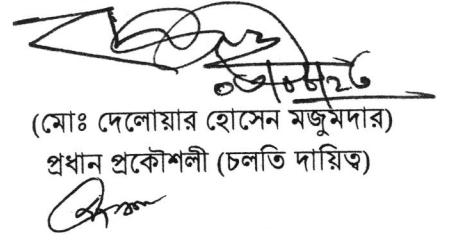 (মোঃ দেলোয়ার হোসেন মজুমদার)
প্রধান প্রকৌশলী (চলতি দায়িত্ব)